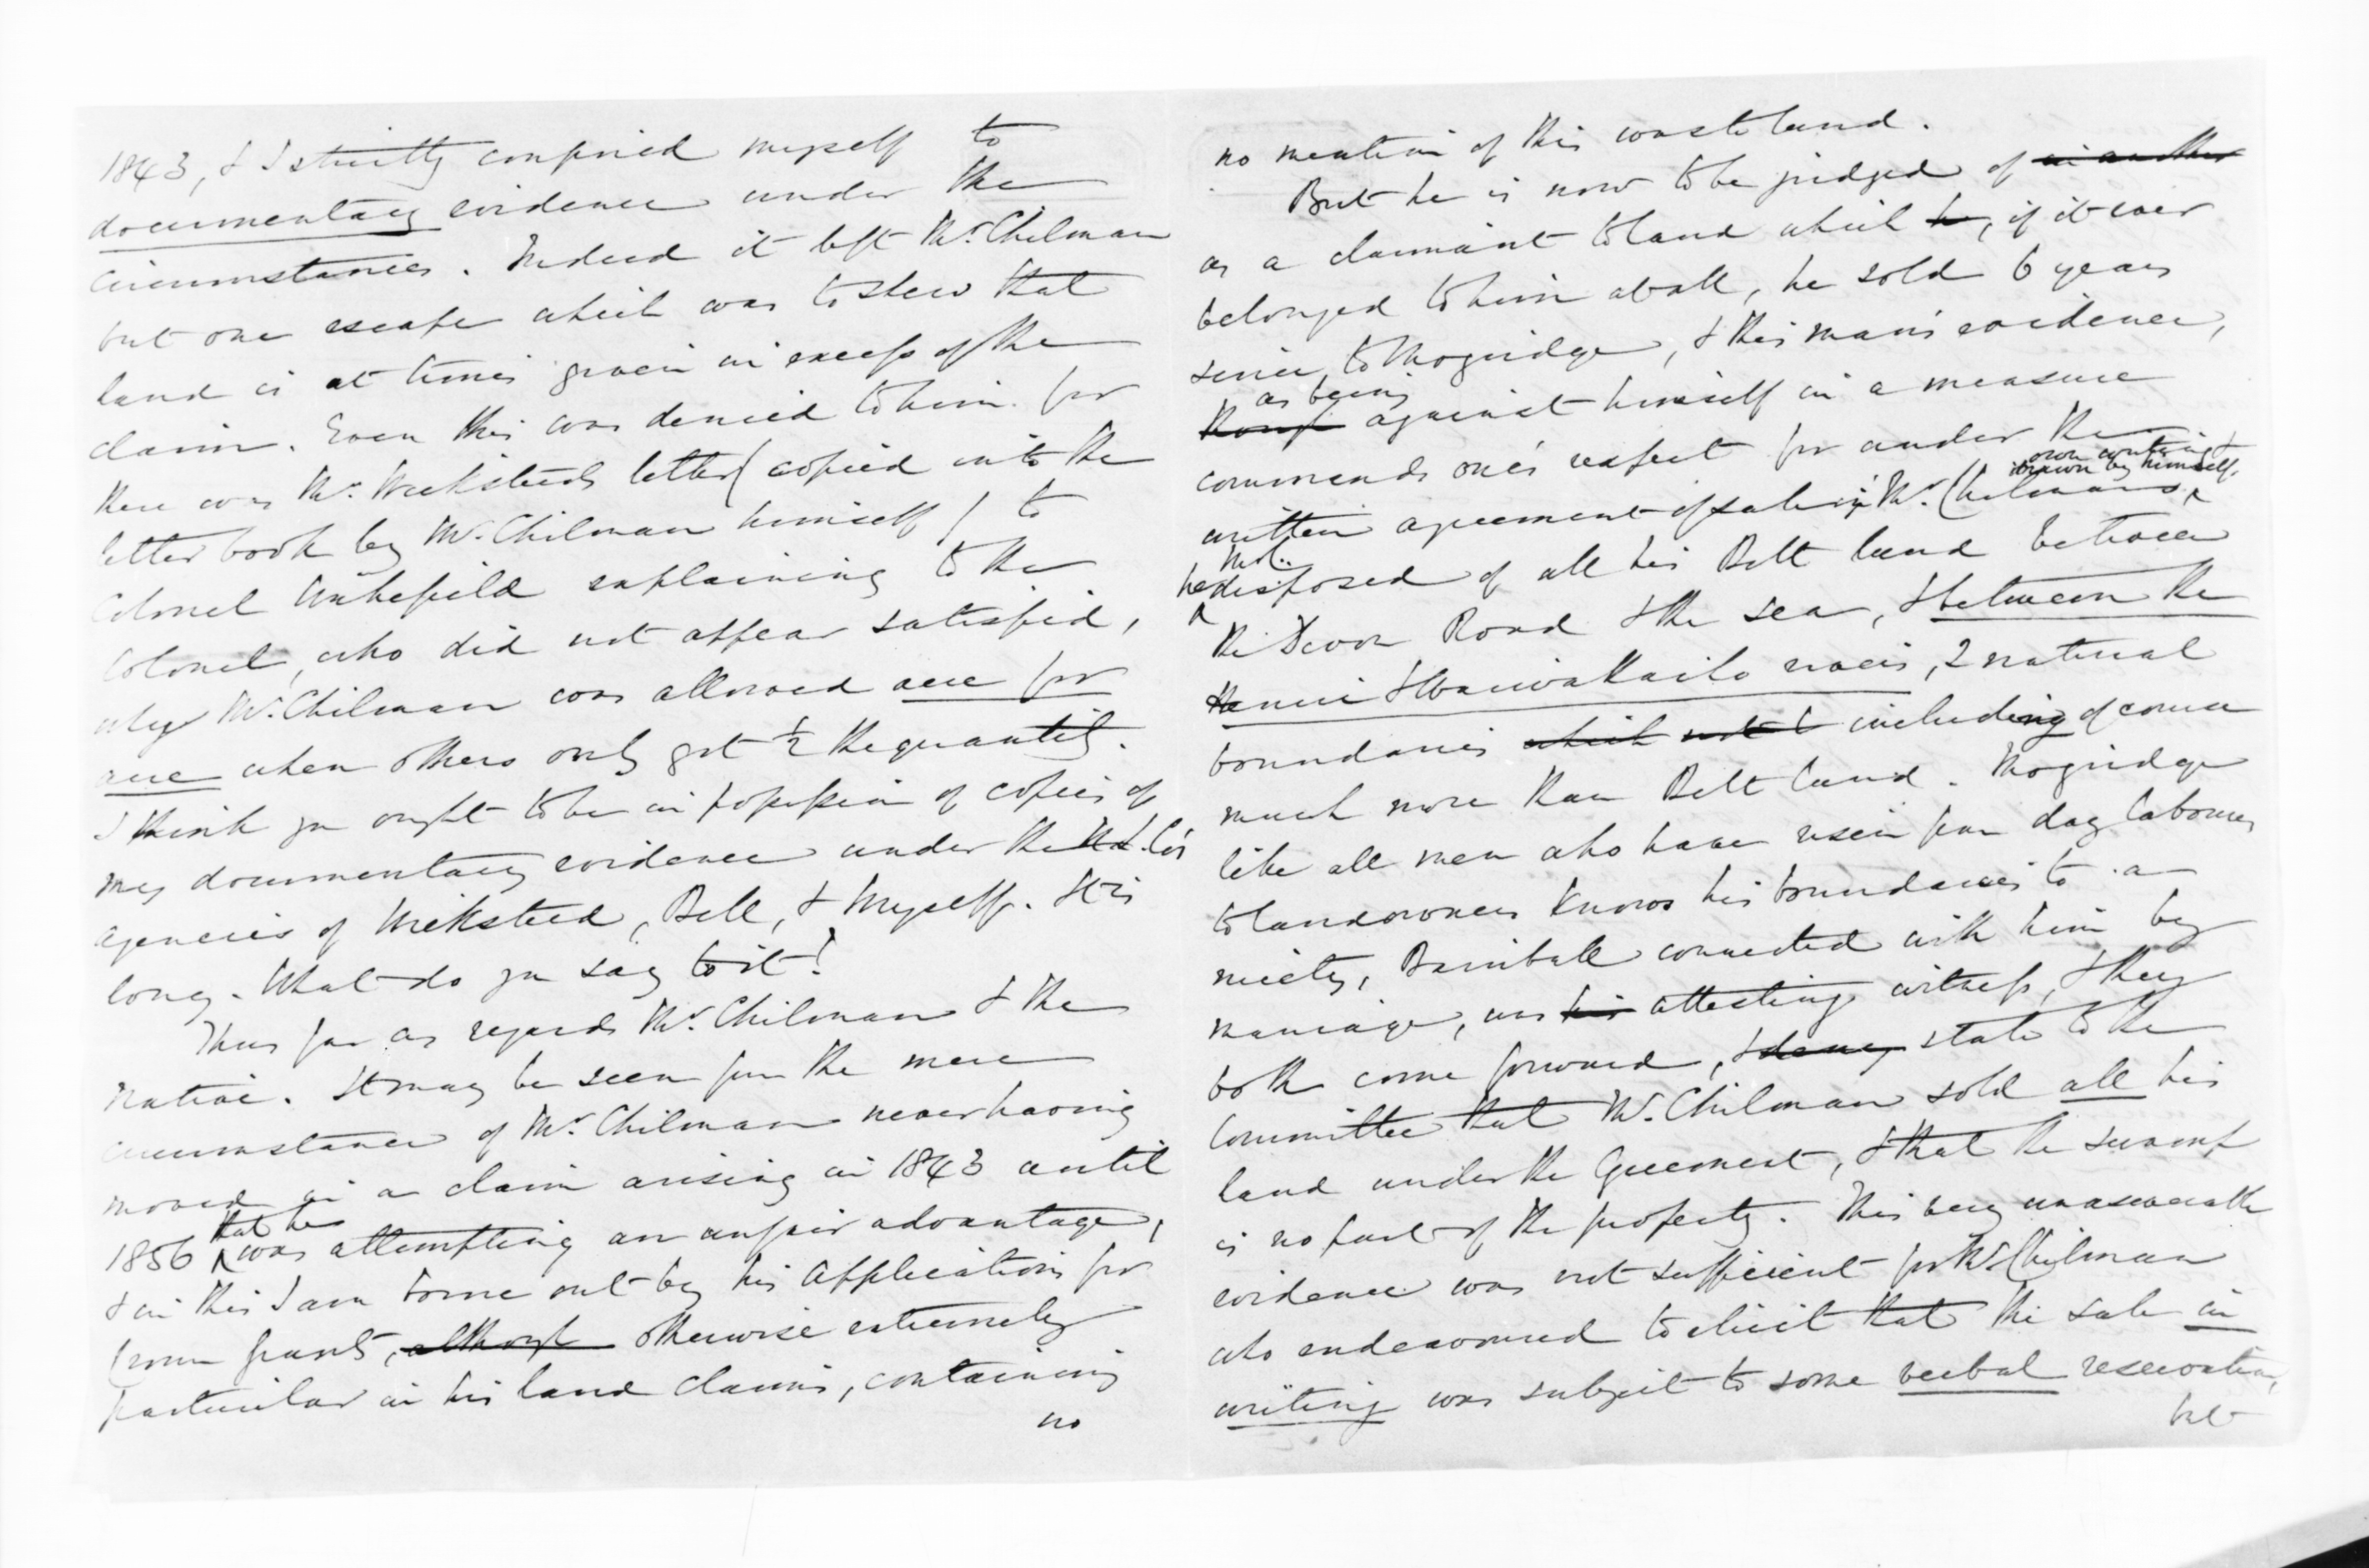 1843, & I strictly confined myself to
documentary evidence under the
circumstances. Indeed it left Mr. Chilman
but one escape which was to shew that
land is at times given in excess of the
claim. Even this was denied to him for
there was Mr. Wicksteeds letter (copied into the
letter book by Mr. Chilman himself) to
Colonel Wakefield explaining to the
Colonel, who did not appear satisfied,
why Mr. Chilman was allowed acre for
acre when others only got ½ the quantity.
I think you ought to be in possession of copies of
my documentary evidence under the N.Z. Co's
agencies of Wicksteed, Bell, & myself. It is
long. What do you say to it?
Thus far as regards Mr. Chilman & the
Native. It may be seen from the mere
circumstance of Mr. Chilman never having
moved in a claim arising in 1843 until
1856 that he was attempting an unfair advantage,
& in this I am borne out by his Applications for
Crown grants, although otherwise extremely
particular in his land claims, containing
no
no mention of this waste land.
But he is now to be judged of in another
as a claimant to land which he, if it ever
belonged to him at all, he sold 6 years
since, to Moguridge, & this man's evidence,
as being
though against himself in a measure
commands one's respect for under the
own writing & drawn by himself,
written agreement of sale in Mr. Chilman's
he disposed of all his Belt land between
the Devon Road & the sea, & between the
Henui & Waiwakaiho rivers, 2 natural
boundaries which including of course
much more than Belt land. Moguridge
like all men who have risen from day labourers
to landowners knows his boundaries to a
nicety, connected with him by
marriage, was his attesting witness, & they
both come forward, & state to the
Committee that Mr. Chilman sold all his
land under the Agreement, & that the swamp
is no part of the property. This very unanswerable
evidence was not sufficient for Mr. Chilman
who endeavoured to elicit that the sale in
writing was subject to some verbal reservation,
but